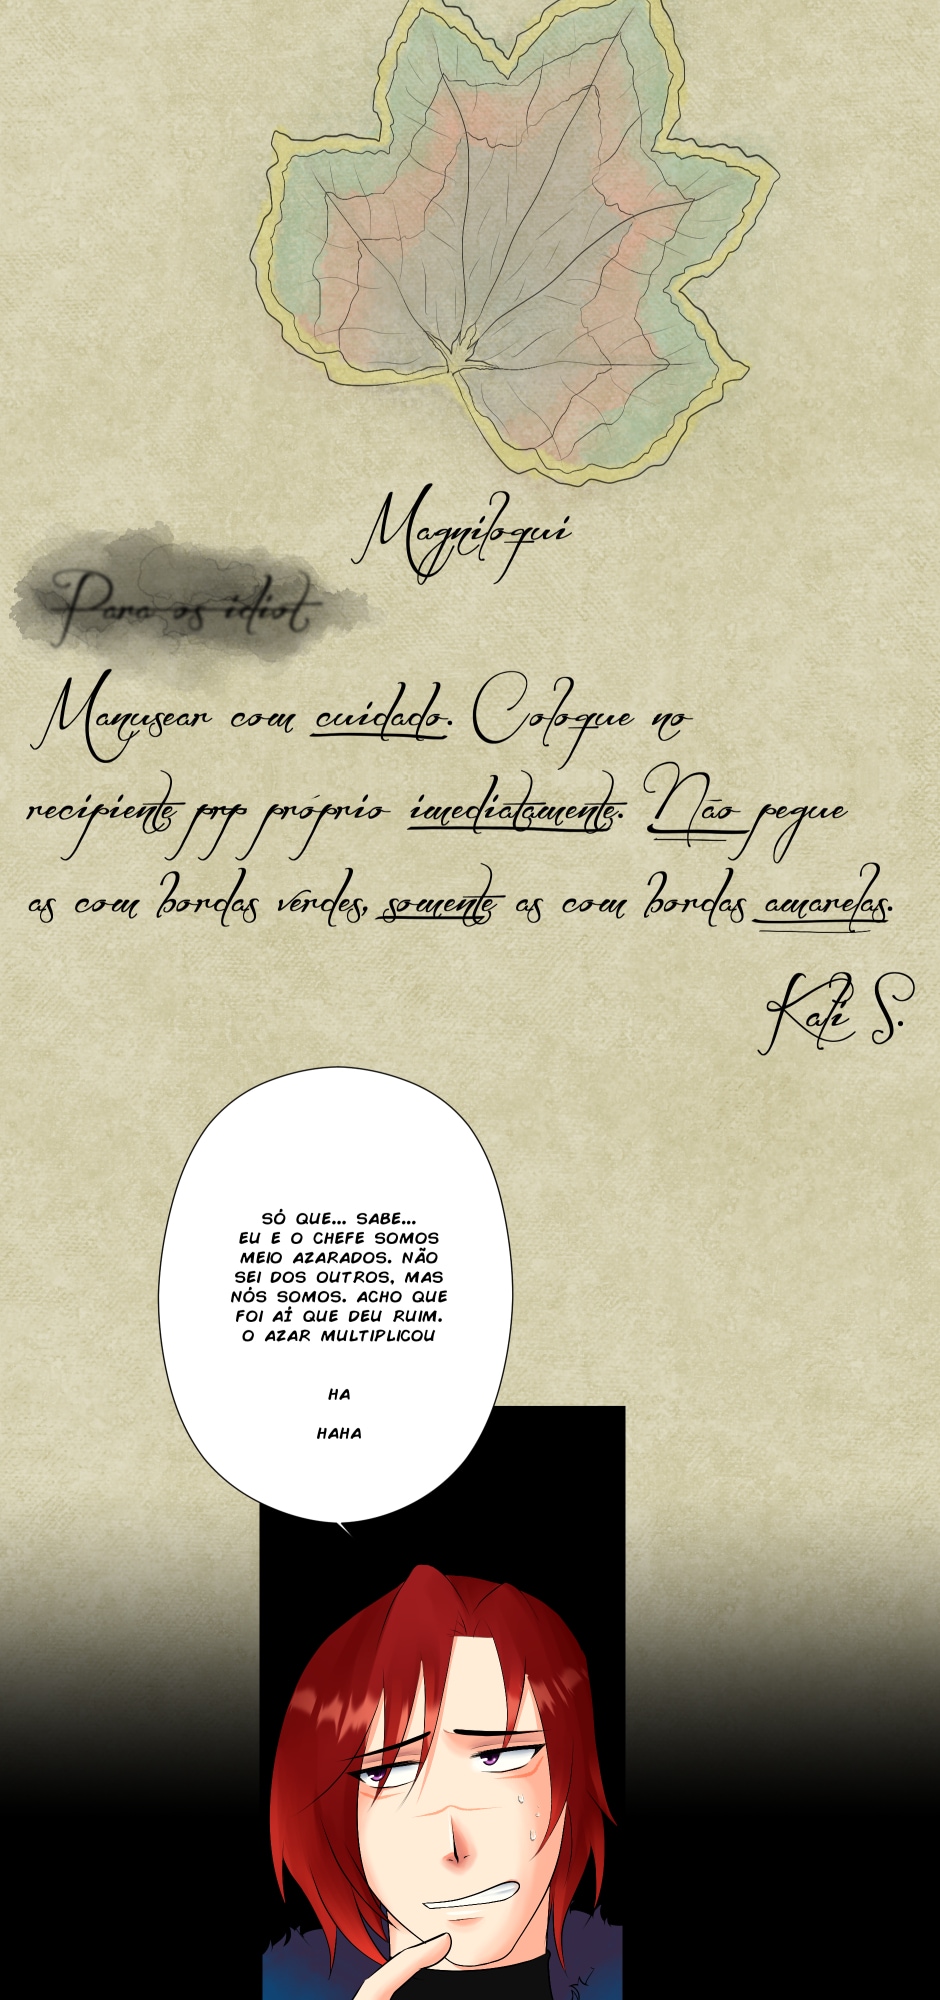 Magniloqui
Para os idiot
Manusear com cuidado. Coloque no
recipiente prp próprio imediatamente. Não pegue
as com bordas verdes, somente as com bordas amarelas.
Kati S.
SÓ QUE... SABE...
EU E O CHEFE SOMOS
MEIO AZARADOS. NÃO
SEI DOS OUTROS, MAS
NÓS SOMOS. ACHO QUE
FOI AÍ QUE DEU RUIM.
O AZAR MULTIPLICOU
HA
HAHA